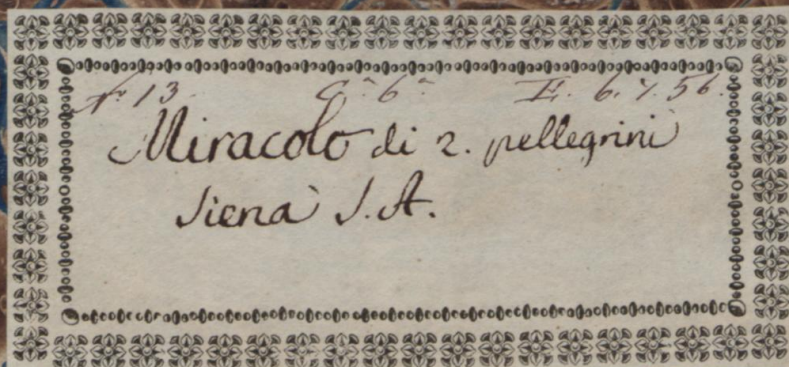 N. 13 Cª 6ª E. 6. 7. 56.
Miracolo di 2. pellegrini
Siena S. A.